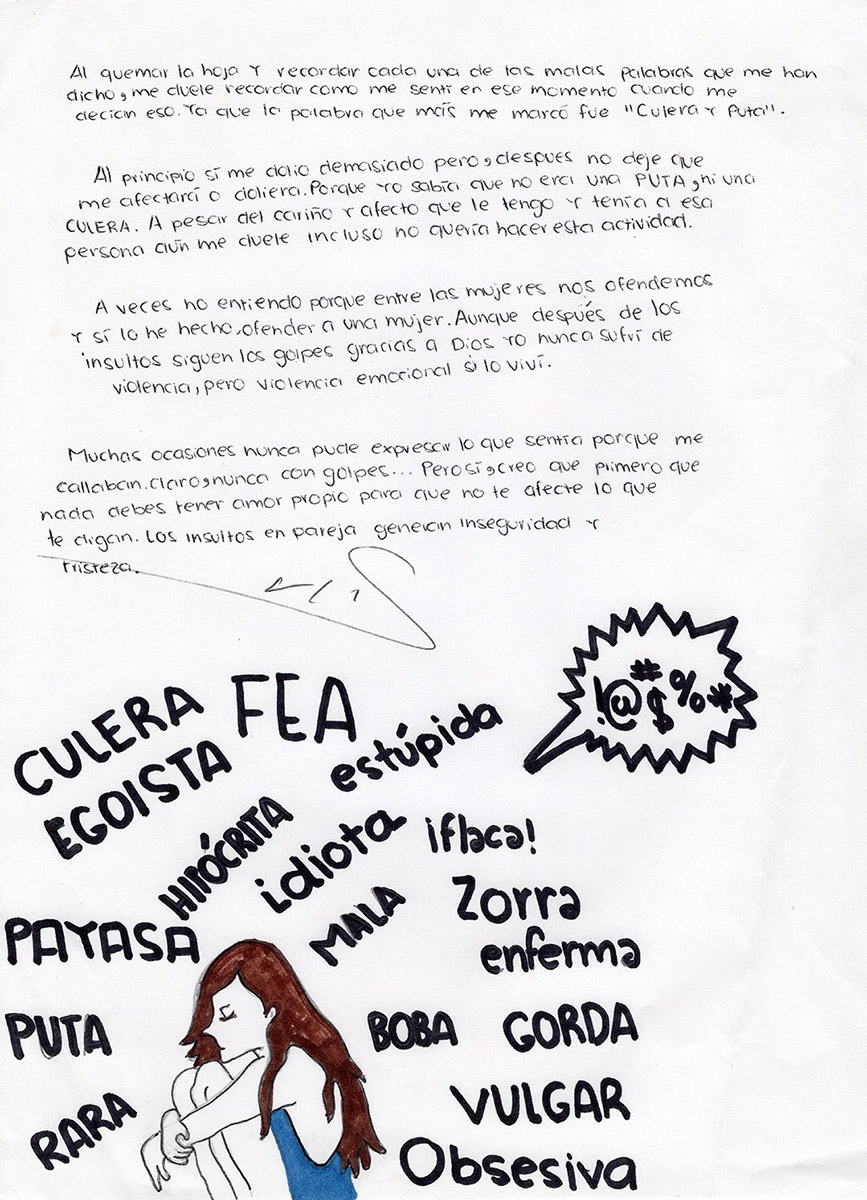 Al quemar la hoja y recordar cada una de las malas palabras que me han
dicho, me duele recordar como me sentí en ese momento cuando me
decían eso. Ya que la palabra que más me marcó fue "Culera y Puta".
Al principio sí me dolio demasiado pero, despues no deje que
me afectará o doliera. Porque yo sabía que no era una PUTA, ni una
CULERA. A pesar del cariño y afecto que le tengo y tenía a esa
persona aún me duele incluso no quería hacer esta actividad.
A veces no entiendo porque entre las mujeres nos ofendemos
y sí lo he hecho, ofender a una mujer. Aunque después de los
insultos siguen los golpes gracias a Dios yo nunca sufrí de
violencia, pero violencia emocional sí lo viví.
Muchas ocasiones nunca pude expresar lo que sentía porque me
callaban. Claro, nunca con golpes... Pero sí, creo que primero que
nada debes tener amor propio para que no te afecte lo que
te digan. Los insultos en pareja generan inseguridad y
tristeza.
CULERA
FEA
!@#$%*
EGOISTA
estúpida
HIPÓCRITA
idiota
¡flaca!
MALA
Zorra
PAYASA
enferma
PUTA
BOBA
GORDA
RARA
VULGAR
Obsesiva